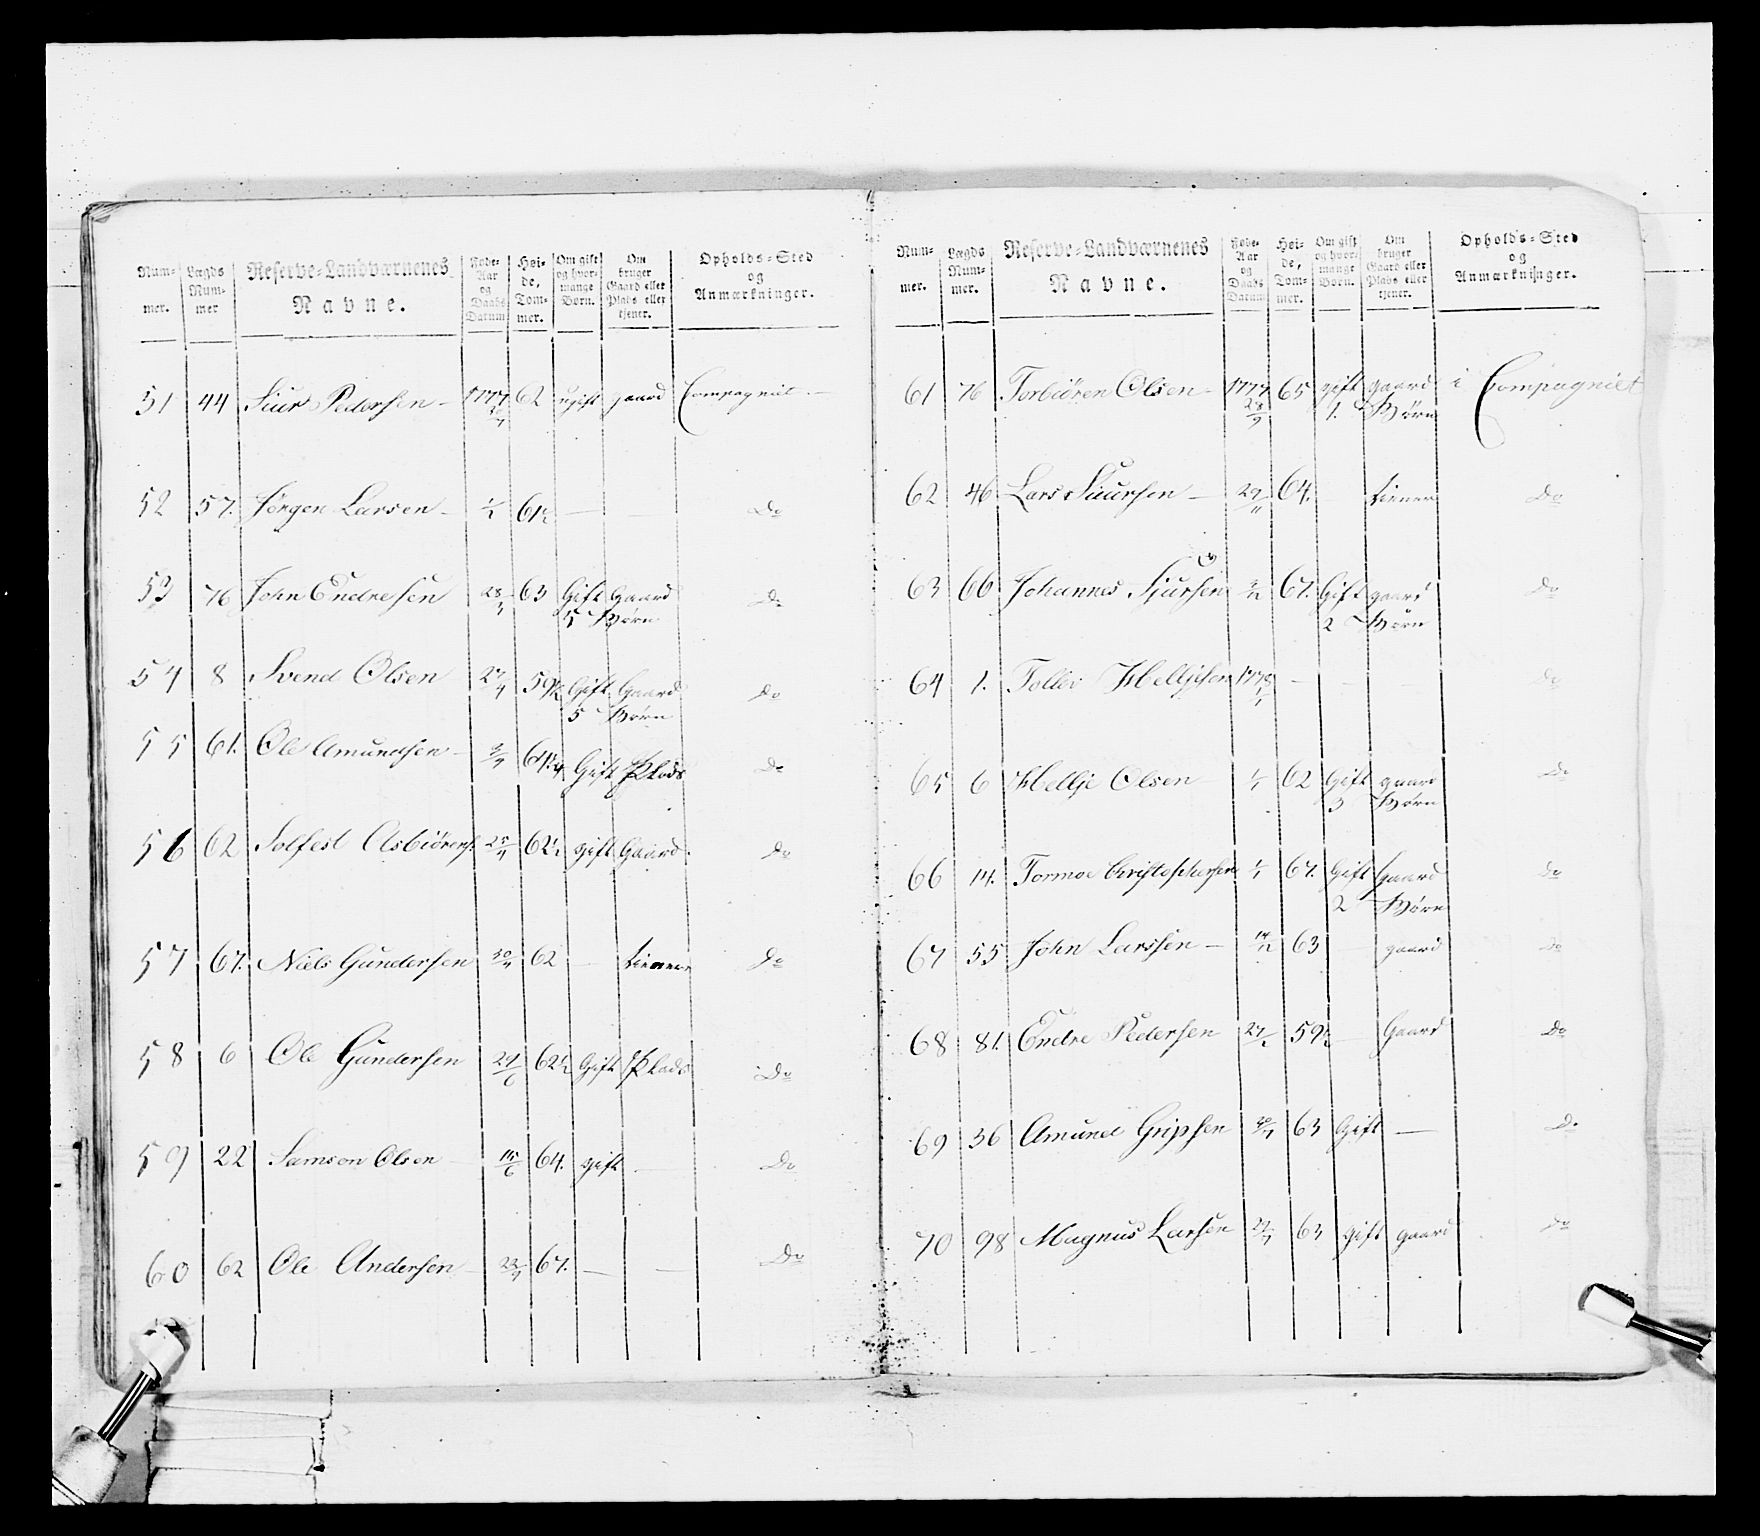 Num- mer. Lægds Num- mer Reserve-Landværnenes Navne. Føde- Aar og Daabs Datum Høi- de, Tom- mer. Om gift og hvor- mange Børn. Om bruger Gaard eller Plads eller tjener. Opholds-Sted og Anmærkninger.
51 44 Siur Pedersen - 1777 62 ugift gaard Compagniet. -
52 57. Jørgen Larsen - 1/1 61½ — — Do
53 76 John Endresen 28/3 63 Gift Gaard Do
5 Børn
54 8 Svend Olsen 27/4 59½ Gift Gaard Do
5 Børn
55 61. Ole Amundsen - 64¼ Gift Plads Do
56 62 Solfest Asbiörens. 25/4 62½ gift Gaard Do
57 67. Niels Gundersen 30/4 62 — tiener Do
58 6 Ole Gundersen 24/6 62½ Gift Plads Do
59 22 Samson Olsen — 15/6 64. gift — Do
60 62 Ole Andersen — 67. — — Do
Num- mer. Lægds Num- mer. Reserve-Landværnenes Navne. Føde- Aar og Daabs Datum Høi- de, Tom- mer. Om gift og hvor- mange Børn. Om bruger Gaard eller Plads eller tjener. Opholds-Sted og Anmærkninger.
61 76 Torbiören Olsen - 1777 65 gift gaard i Compagniet
28/9 1. Börn
62 46 Lars Siursen — 29/11 64. tiener Do
63 66 Johannes Sjursen 67. Gift gaard Do
2 Börn
64 1. Tollev Helljesen 1778 — — — Do
1/1
65 6 Hellje Olsen — 1/1 62 Gift gaard Do
3 Børn
66 14. Tormoe Christophersen 1/1 67. Gift Gaard Do
2 Børn
67 55 John Larssen — 14/12 63 — gaard Do
68 81. Endre Pedersen 59½ — Gaard Do
69 36 Amund Gripsen 63 Gift — Do
70 98 Magnus Larsen 63 gift gaard Do